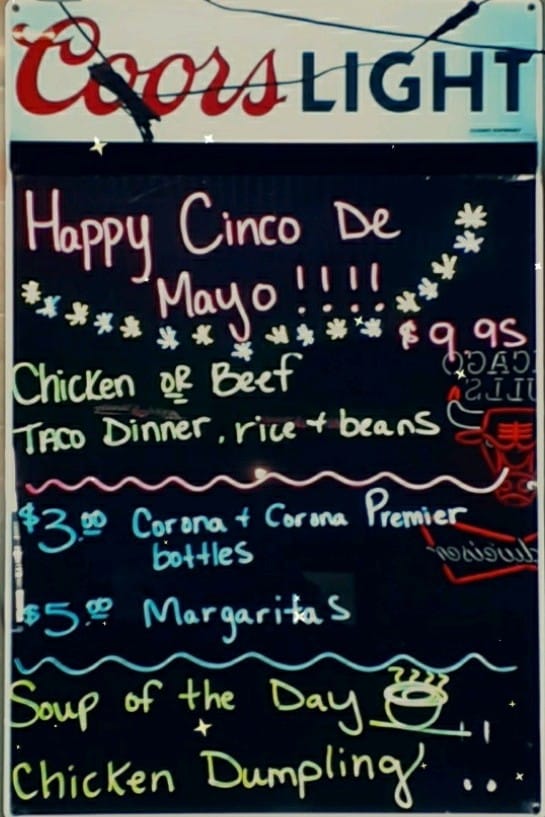 Coors LIGHT
Happy Cinco De
Mayo !!!!
$9.95
Chicken OR Beef
Taco Dinner, rice + beans
$3.00 Corona + Corona Premier
bottles
$5.00 Margaritas
Soup of the Day
Chicken Dumpling